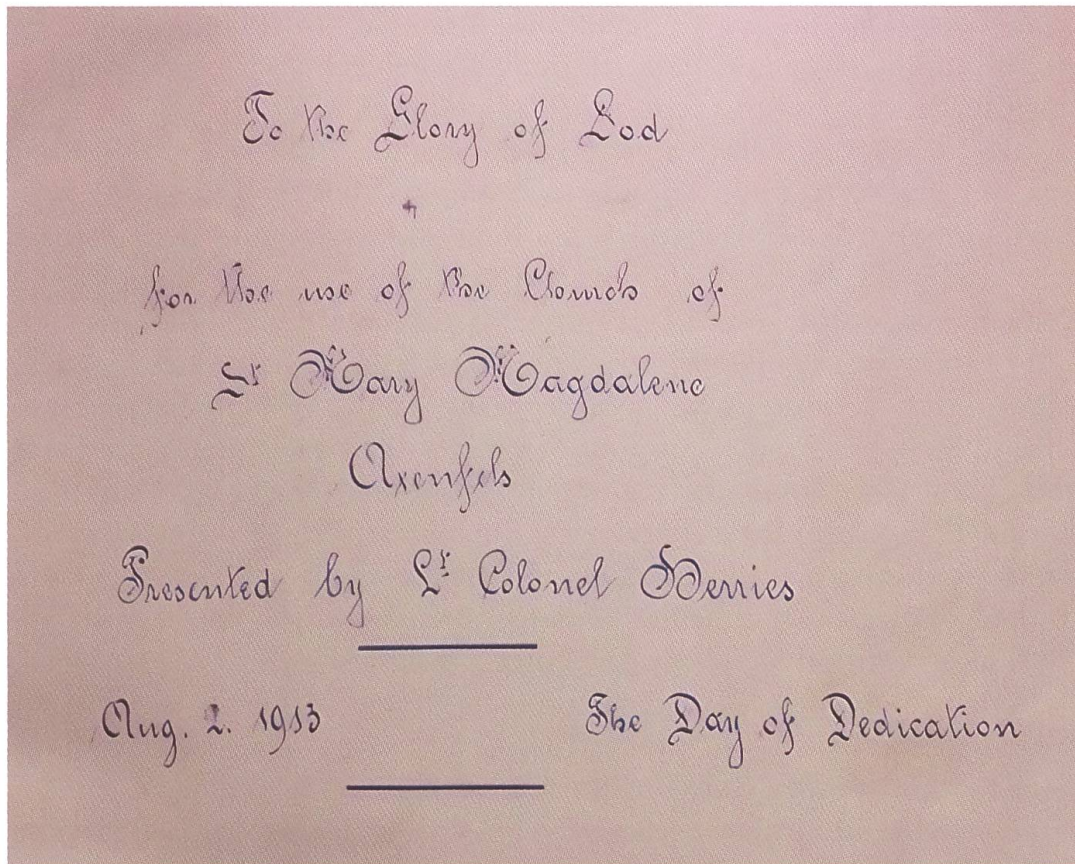 To the Glory of God
+
for the use of the Church of
St Mary Magdalene
Axenfels
Presented by Lt Colonel Herries
Aug. 2. 1913 The Day of Dedication